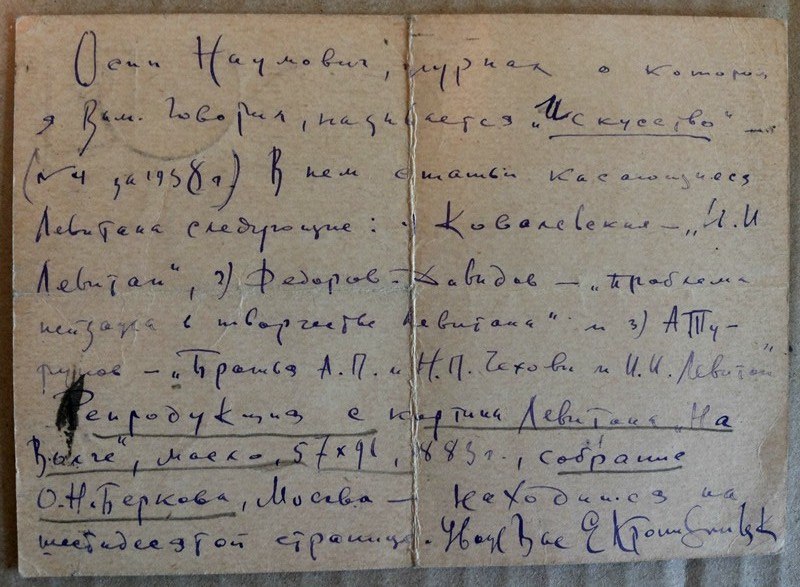 Осип Наумович, журнал о котором
я Вам говорил, называется „Искусство" —
(№ 4 за 1938 г.) В нем статьи касающиеся
Левитана следующие: 1) Ковалевская — „И. И
Левитан", 2) Федоров-Давидов — „Проблема
пейзажа в творчестве Левитана" и 3) А Ту-
рунов — „Братья А. П. и Н. П. Чеховы и И. И. Левитан"
Репродукция с картины Левитана „На
Волге", масло, 57×91, 1883 г., собрание
О. Н. Беркова, Москва — находится на
шестидесятой странице. Уваж Вас